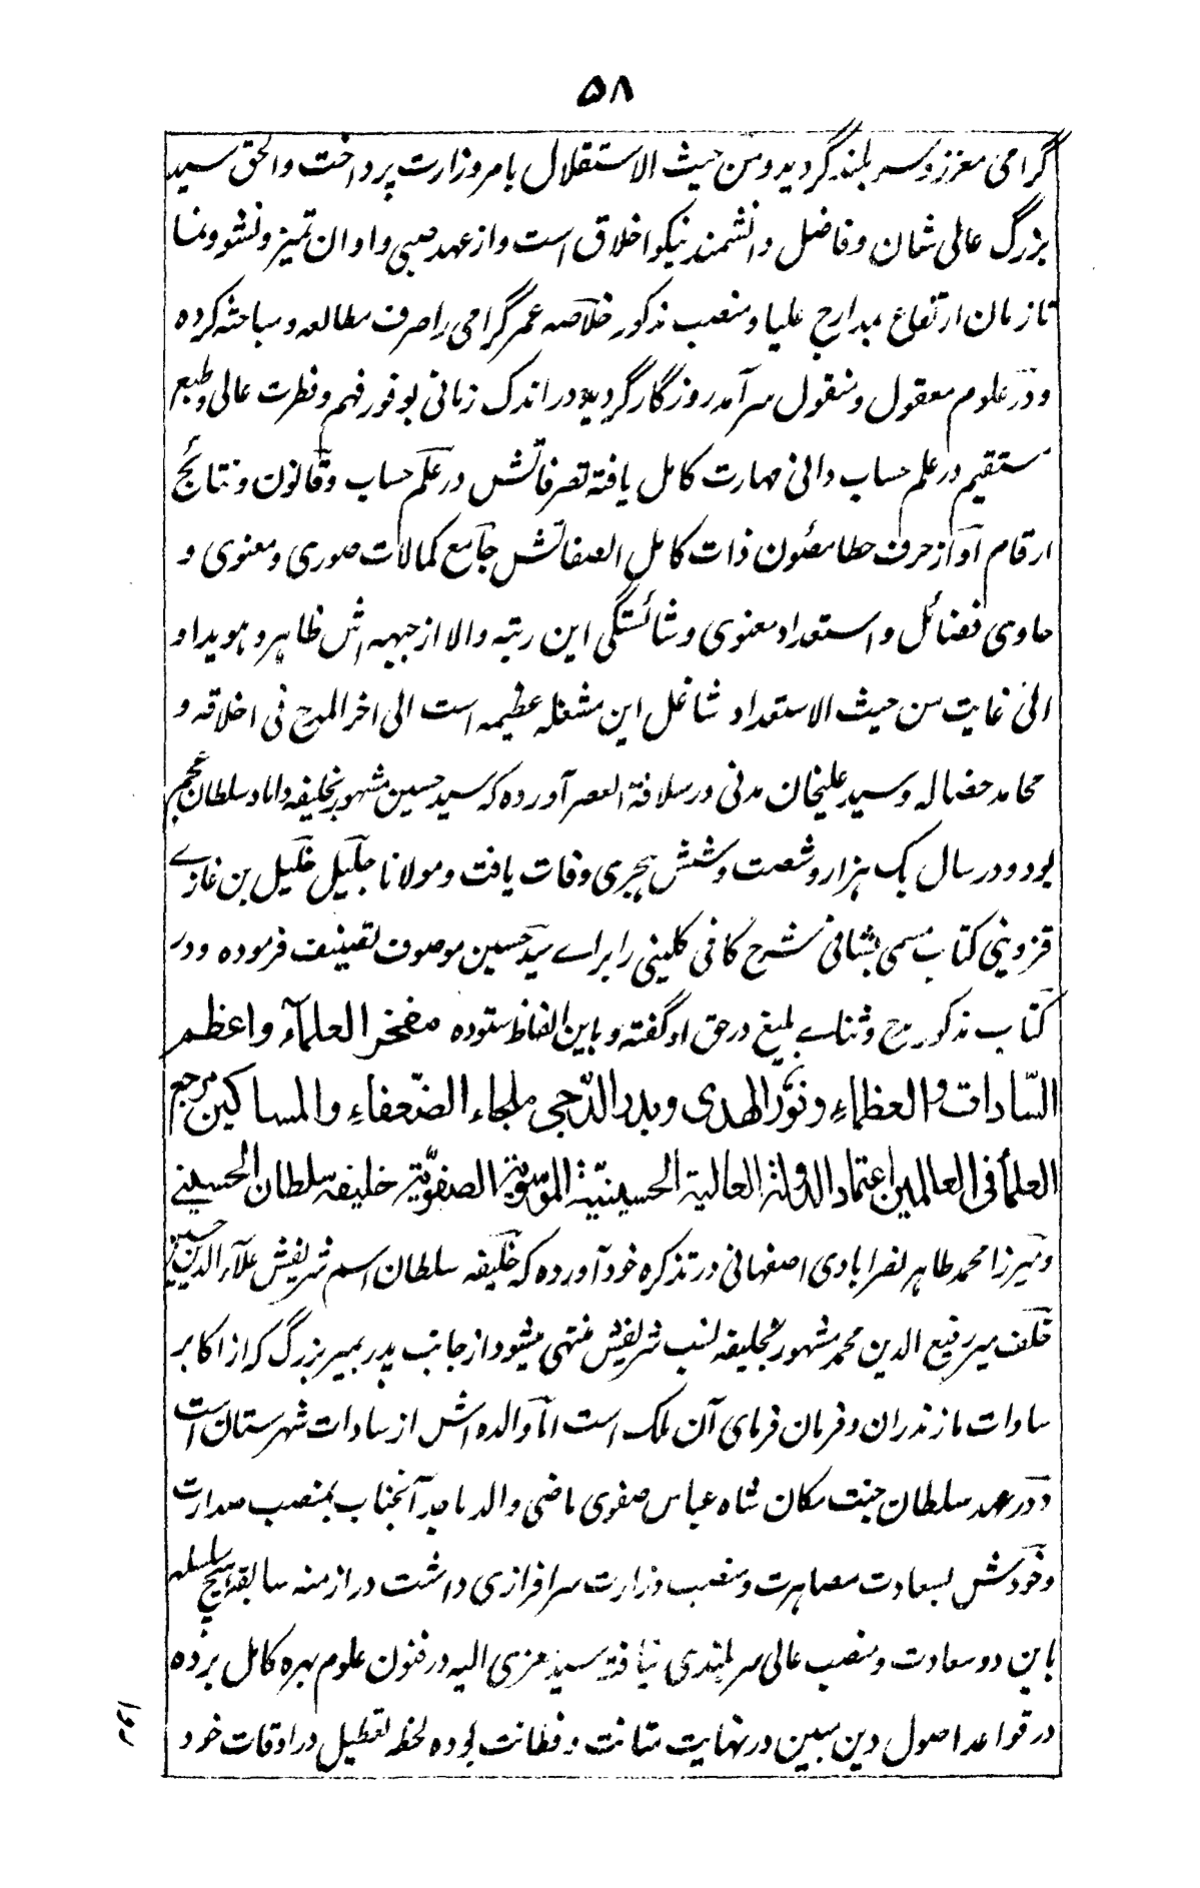 ۵۸
گرامی معزز و سر بلند گردید و من حیث الاستقلال بامر وزارت پرداخت والحق سید
بزرگ عالی شان و فاضل دانشمند نیکو اخلاق است و از عهد صبی و اوان تمیز و نشو و نما
تا زمان ارتفاع بمدارج علیا و منصب مذکور خلاصه عمر گرامی را صرف مطالعه و مباحثه کرده
و در علوم معقول و منقول سرآمد روزگار گردیده در اندک زمانی بوفور فهم و فطرت عالی و طبع
مستقیم در علم حساب دانی مهارت کامل یافته تصرفاتش در علم حساب و قانون و نتائج
ارقام او از حرف خطا مصئون ذات کامل الصفاتش جامع کمالات صوری و معنوی و
حاوی فضائل و استعداد معنوی و شائستگی این رتبه والا از جبهه اش ظاهر و هویدا و
الی غایت من حیث الاستعداد شاغل این مشغله عظیمه است الی اخر المدح فی اخلاقه و
محامد خصاله و سید علیخان مدنی در سلافة العصر آورده که سید حسین مشهور بخلیفه داماد سلطان عجم
بود و در سال یک هزار و شصت و شش هجری وفات یافت و مولانا جلیل خلیل بن غازے
قزوینی کتاب مسمی بشافی شرح کافی کلینی را برائے سید حسین موصوف تصینف فرموده و در
کتاب مذکور مدح و ثنائے بلیغ در حق او گفته و باین الفاظ ستوده مفخر العلمآء واعظم
السّادات والعظماء ونوّر الهدی وبدر الدّجی ملجاء الضّعفاء والمساکین مرجع
العلمأ فی العالمین اعتماد الدولة العالیة الحسینیّة الموسویة الصفویّة خلیفه سلطان الحسینے
و میرزا محمد طاهر نصرابادی اصفهانی در تذکره خود آورده که خلیفه سلطان اسم شریفش علآء الدین حسین
خلف میر رفیع الدین محمد مشهور بخلیفه نسب شریفش منتهی میشود از جانب پدر بمیر بزرگ که از اکابر
سادات مازندران و فرمان فرمای آن ملک است اما والده اش از سادات شهرستان است
و در عهد سلطان جنت مکان شاه عباس صفوی ماضی والد ماجد آنجناب بمنصب صدارت
و خودش بسعادت مصاهرت و منصب وزارت سرافرازی داشت در ازمنه سابقه هیچ سلسله
باین دو سعادت و منصب عالی سر بلندی نیافته سید عزی الیه در فنون علوم بهره کامل برده
در قواعد اصول دین مبین در نهایت متانت و فطانت بوده لحظه تعطیل در اوقات خود